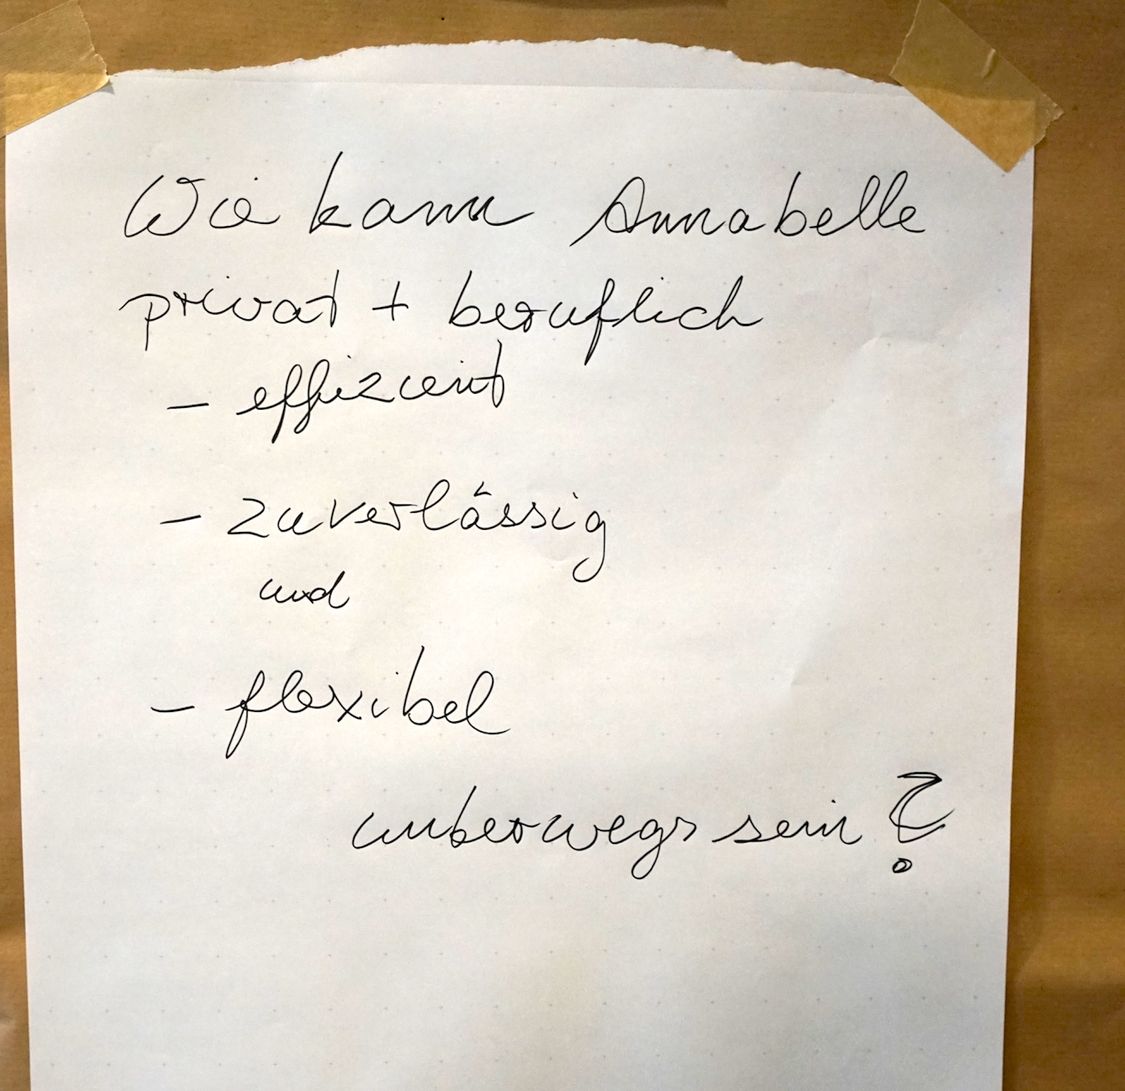 Wie kann Annabelle
privat + beruflich
- effizient
- zuverlässig
und
- flexibel
unterwegs sein?